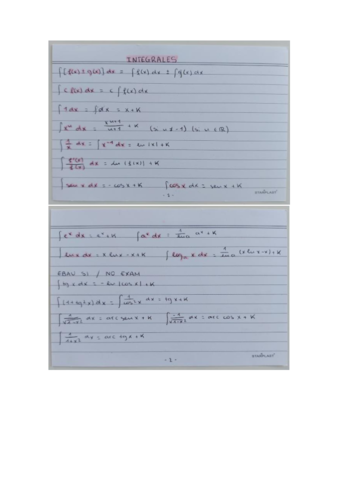 INTEGRALES
∫[f(x) ± g(x)] dx = ∫f(x) dx ± ∫g(x) dx
∫c f(x) dx = c ∫f(x) dx
∫1 dx = ∫dx = x + K
∫xⁿ dx = xⁿ⁺¹/n+1 + K (n ≠ -1)
∫1/x dx = ∫x⁻¹ dx = ln(x) + K
∫f'(x)/f(x) dx = ln(f(x)) + K
∫sen x dx = -cos x + K ∫cos x dx = sen x + K
- 1 -
∫eˣ dx = eˣ + K ∫aˣ dx = 1/ln a aˣ + K
∫ln x dx = x ln x - x + K ∫logₐ x dx = 1/ln a (x ln x - x) + K
EBAU 21 / NO EXAM
∫tg x dx = -ln(cos x) + K
∫(1 + tg²x) dx = ∫1/cos²x dx = tg x + K
dx = arc sen x + K dx = arc cos x + K
dx = arc tg x + K
- 2 -